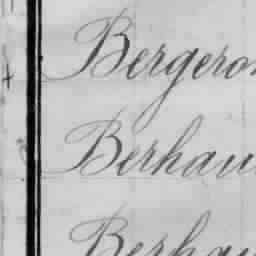 Bergero
Berhau
Berhau